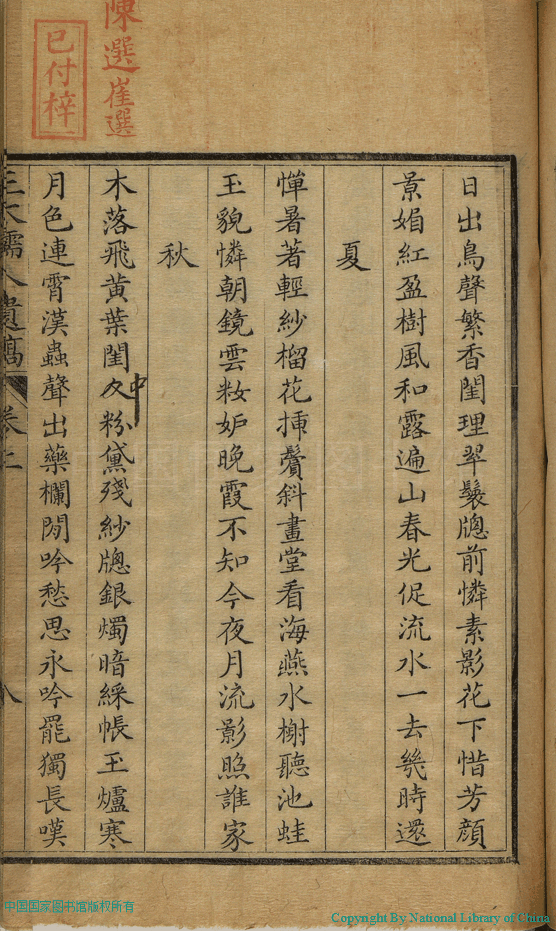 陳選崔選
已付梓
日出鳥聲繁香閨理翠鬟牕前憐素影花下惜芳顔
景娟紅盈樹風和露遍山春光促流水一去幾時還
夏
憚暑著輕紗榴花揷鬢斜畫堂看海燕水榭聽池蛙
玉貌憐朝鏡雲粧妒晚霞不知今夜月流影照誰家
秋
木落飛黃葉閨中粉黛殘紗牕銀燭暗綵帳玉爐寒
月色連霄漢蟲聲出藥欄閒吟愁思永吟罷獨長嘆
太孺人遺稿 卷上 八
中国国家图书馆版权所有
Copyright By National Library of China